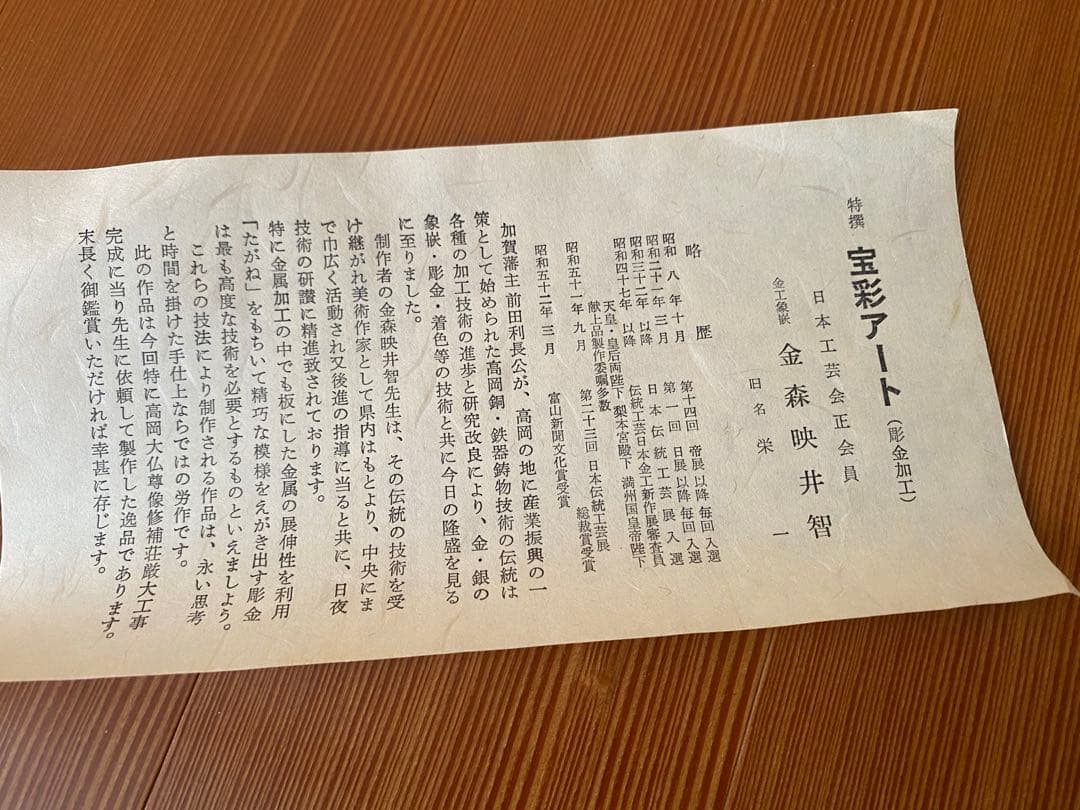 特撰 宝彩アート（彫金加工）
日本工芸会正会員
金工象嵌 金森映井智
旧名 栄一
略歴
昭和八年十月 第十四回 帝展以降毎回入選
昭和二十一年三月 第一回 日展以降毎回入選
昭和三十二年以降 日本伝統工芸展入選
昭和四十七年以降 伝統工芸日本金工新作展審査員
天皇・皇后両陛下 梨本宮殿下 満州国皇帝陛下
献上品製作委嘱多数
昭和五十一年九月 第二十三回 日本伝統工芸展
総裁賞受賞
昭和五十二年三月 富山新聞文化賞受賞
加賀藩主前田利長公が、高岡の地に産業振興の一
策として始められた高岡銅・鉄器鋳物技術の伝統は
各種の加工技術の進歩と研究改良により、金・銀の
象嵌・彫金・着色等の技術と共に今日の隆盛を見る
に至りました。
制作者の金森映井智先生は、その伝統の技術を受
け継がれ美術作家として県内はもとより、中央にま
で巾広く活動され又後進の指導に当ると共に、日夜
技術の研讃に精進致されております。
特に金属加工の中でも板にした金属の展伸性を利用
「たがね」をもちいて精巧な模様をえがき出す彫金
は最も高度な技術を必要とするものといえましよう。
これらの技法により制作される作品は、永い思考
と時間を掛けた手仕上ならではの労作です。
此の作品は今回特に高岡大仏尊像修補荘厳大工事
完成に当り先生に依頼して製作した逸品であります。
末長く御鑑賞いただければ幸甚に存じます。